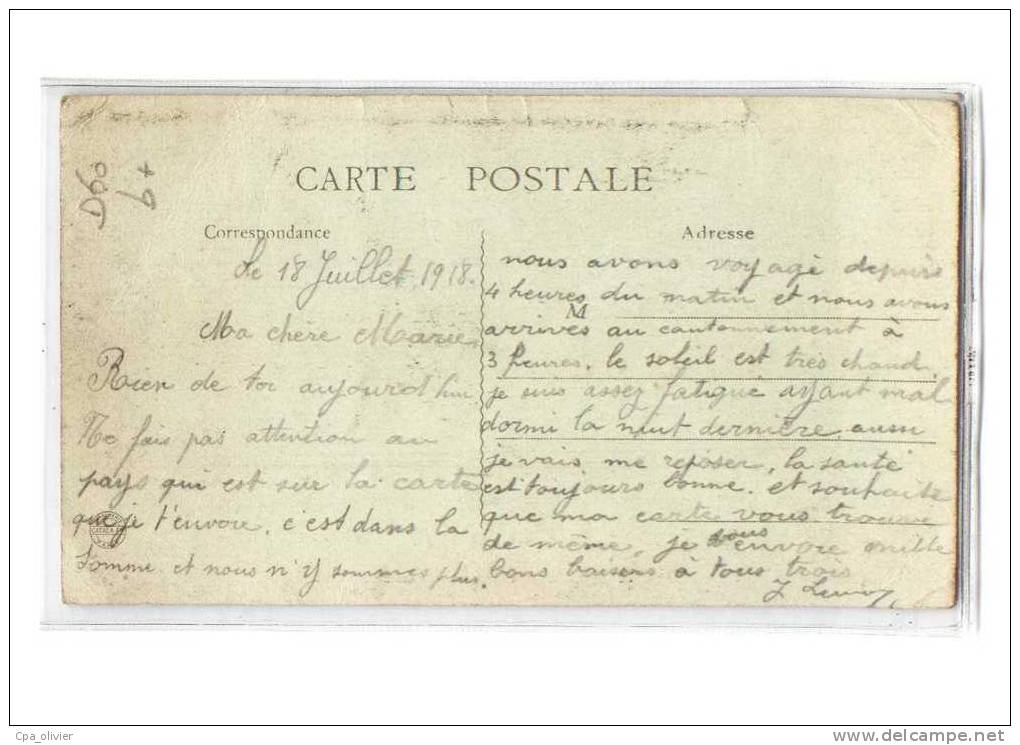 CARTE POSTALE
Correspondance
Le 18 Juillet 1918.
Ma chère Marie
Rien de toi aujourd'hui
Ne fais pas attention au
pays qui est sur la carte
que je t'envoie, c'est dans la
Somme et nous n'y sommes plus.
Adresse
M
nous avons voyagé depuis
4 heures du matin et nous avons
arrivés au cantonnement à
3 heures, le soleil est très chaud,
je suis assez fatigué ayant mal
dormi la nuit dernière, aussi
je vais me reposer, la santé
est toujours bonne, et souhaite
que ma carte vous trouve
de même, je vous envoie mille
bons baisers à tous trois
Cpa_olivier
www.delcampe.net